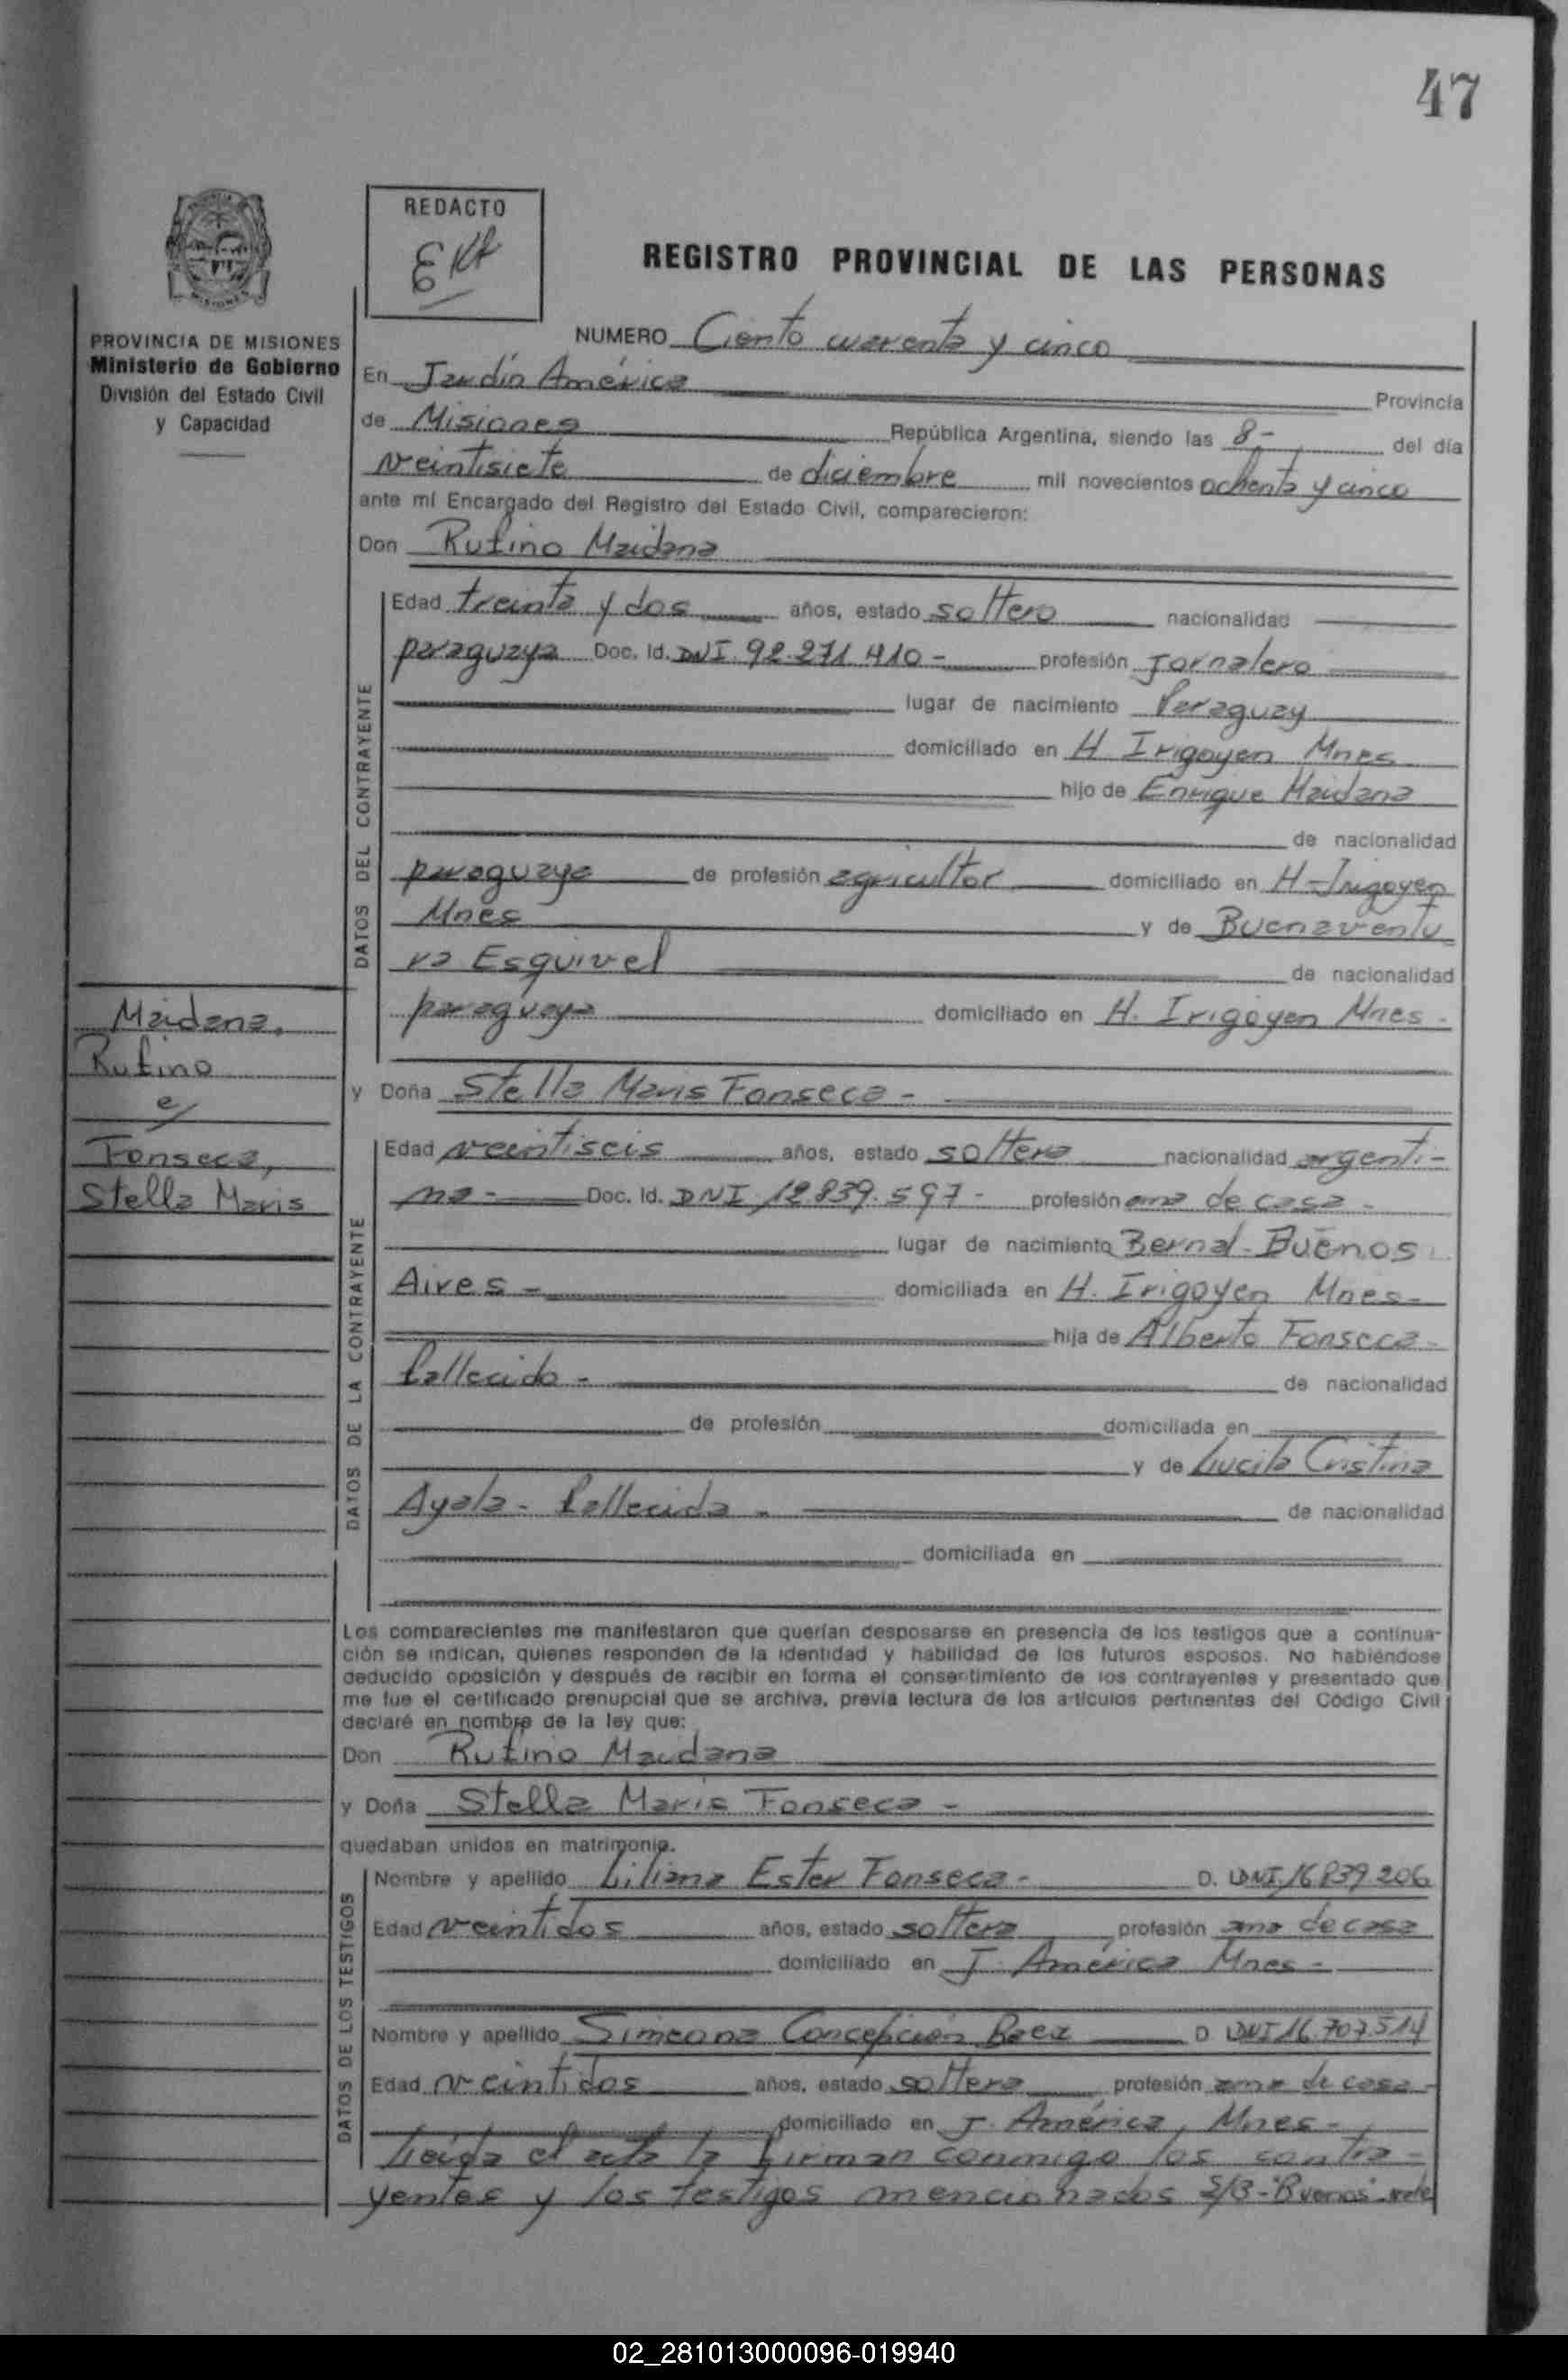 47
REDACTO
REGISTRO PROVINCIAL DE LAS PERSONAS
MISIONES
PROVINCIA DE MISIONES
Ministerio de Gobierno
División del Estado Civil
y Capacidad
NUMERO Ciento cuarenta y cinco
En Jardín América Provincia
de Misiones República Argentina, siendo las 8- del día
veintisiete de diciembre mil novecientos ochenta y cinco
ante mí Encargado del Registro del Estado Civil, comparecieron:
Don Rufino Maidana
DATOS DEL CONTRAYENTE
Edad treinta y dos años, estado soltero nacionalidad
paraguaya Doc. Id. DNI. 92.271.410- profesión Jornalero
lugar de nacimiento Paraguay
domiciliado en H Irigoyen Mnes
hijo de Enrique Maidana
de nacionalidad
paraguaya de profesión agricultor domiciliado en H-Irigoyen
Mnes y de Buenaventu
ra Esquivel de nacionalidad
paraguaya domiciliado en H. Irigoyen Mnes-
Maidana,
Rufino
e/
Fonseca,
Stella Maris
y Doña Stella Maris Fonseca-
DATOS DE LA CONTRAYENTE
Edad veintiseis años, estado soltera nacionalidad argenti-
na- Doc. Id. DNI 12.839.597- profesión ama de casa-
lugar de nacimiento Bernal-Buenos
Aires- domiciliada en H. Irigoyen Mnes-
hija de Alberto Fonseca-
fallecido- de nacionalidad
de profesión domiciliada en
y de Lucila Cristina
Ayala- fallecida- de nacionalidad
domiciliada en
Los comparecientes me manifestaron que querían desposarse en presencia de los testigos que a continua-
ción se indican, quienes responden de la identidad y habilidad de los futuros esposos. No habiéndose
deducido oposición y después de recibir en forma el consentimiento de los contrayentes y presentado que
me fue el certificado prenupcial que se archiva, previa lectura de los artículos pertinentes del Código Civil
declaré en nombre de la ley que:
Don Rufino Maidana
y Doña Stella Maris Fonseca-
quedaban unidos en matrimonio.
DATOS DE LOS TESTIGOS
Nombre y apellido Liliana Ester Fonseca- D. I. DNI. 16839206
Edad veintidos años, estado soltera profesión ama de casa
domiciliado en J. América Mnes-
Nombre y apellido Simeona Concepción Baez D. I. DNI 16.707.514
Edad veintidos años, estado soltera profesión ama de casa-
domiciliado en J. América, Mnes-
Leída el acta la firman conmigo los contra-
yentes y los testigos mencionados S/B-"Buenos" vale
02_281013000096-019940